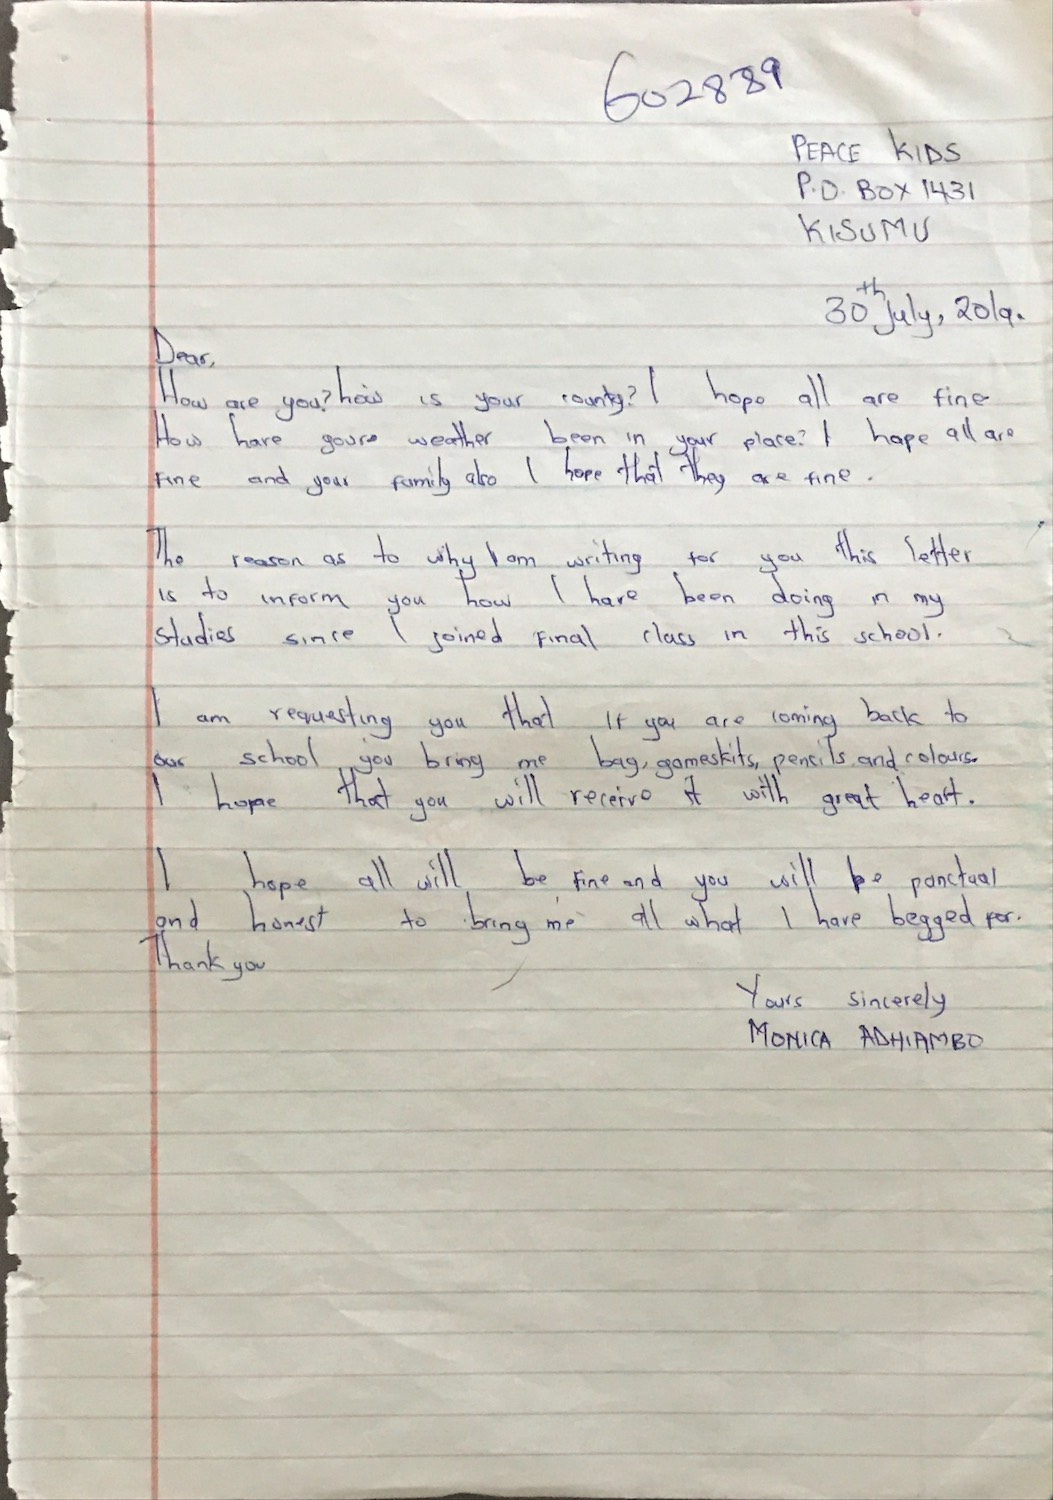 602889
PEACE KIDS
P.O. BOX 1431
KISUMU
30th July, 2019.
Dear,
How are you? how is your county? I hope all are fine
How have yours weather been in your place? I hope all are
fine and your family also I hope that they are fine.
The reason as to why I am writing for you this letter
is to inform you how I have been doing in my
studies since I joined final class in this school.
I am requesting you that if you are coming back to
our school you bring me bag, gameskits, pencils and colours.
I hope that you will receive it with great heart.
I hope all will be fine and you will be punctual
and honest to bring me all what I have begged for.
Thank you
Yours sincerely
MONICA ADHIAMBO